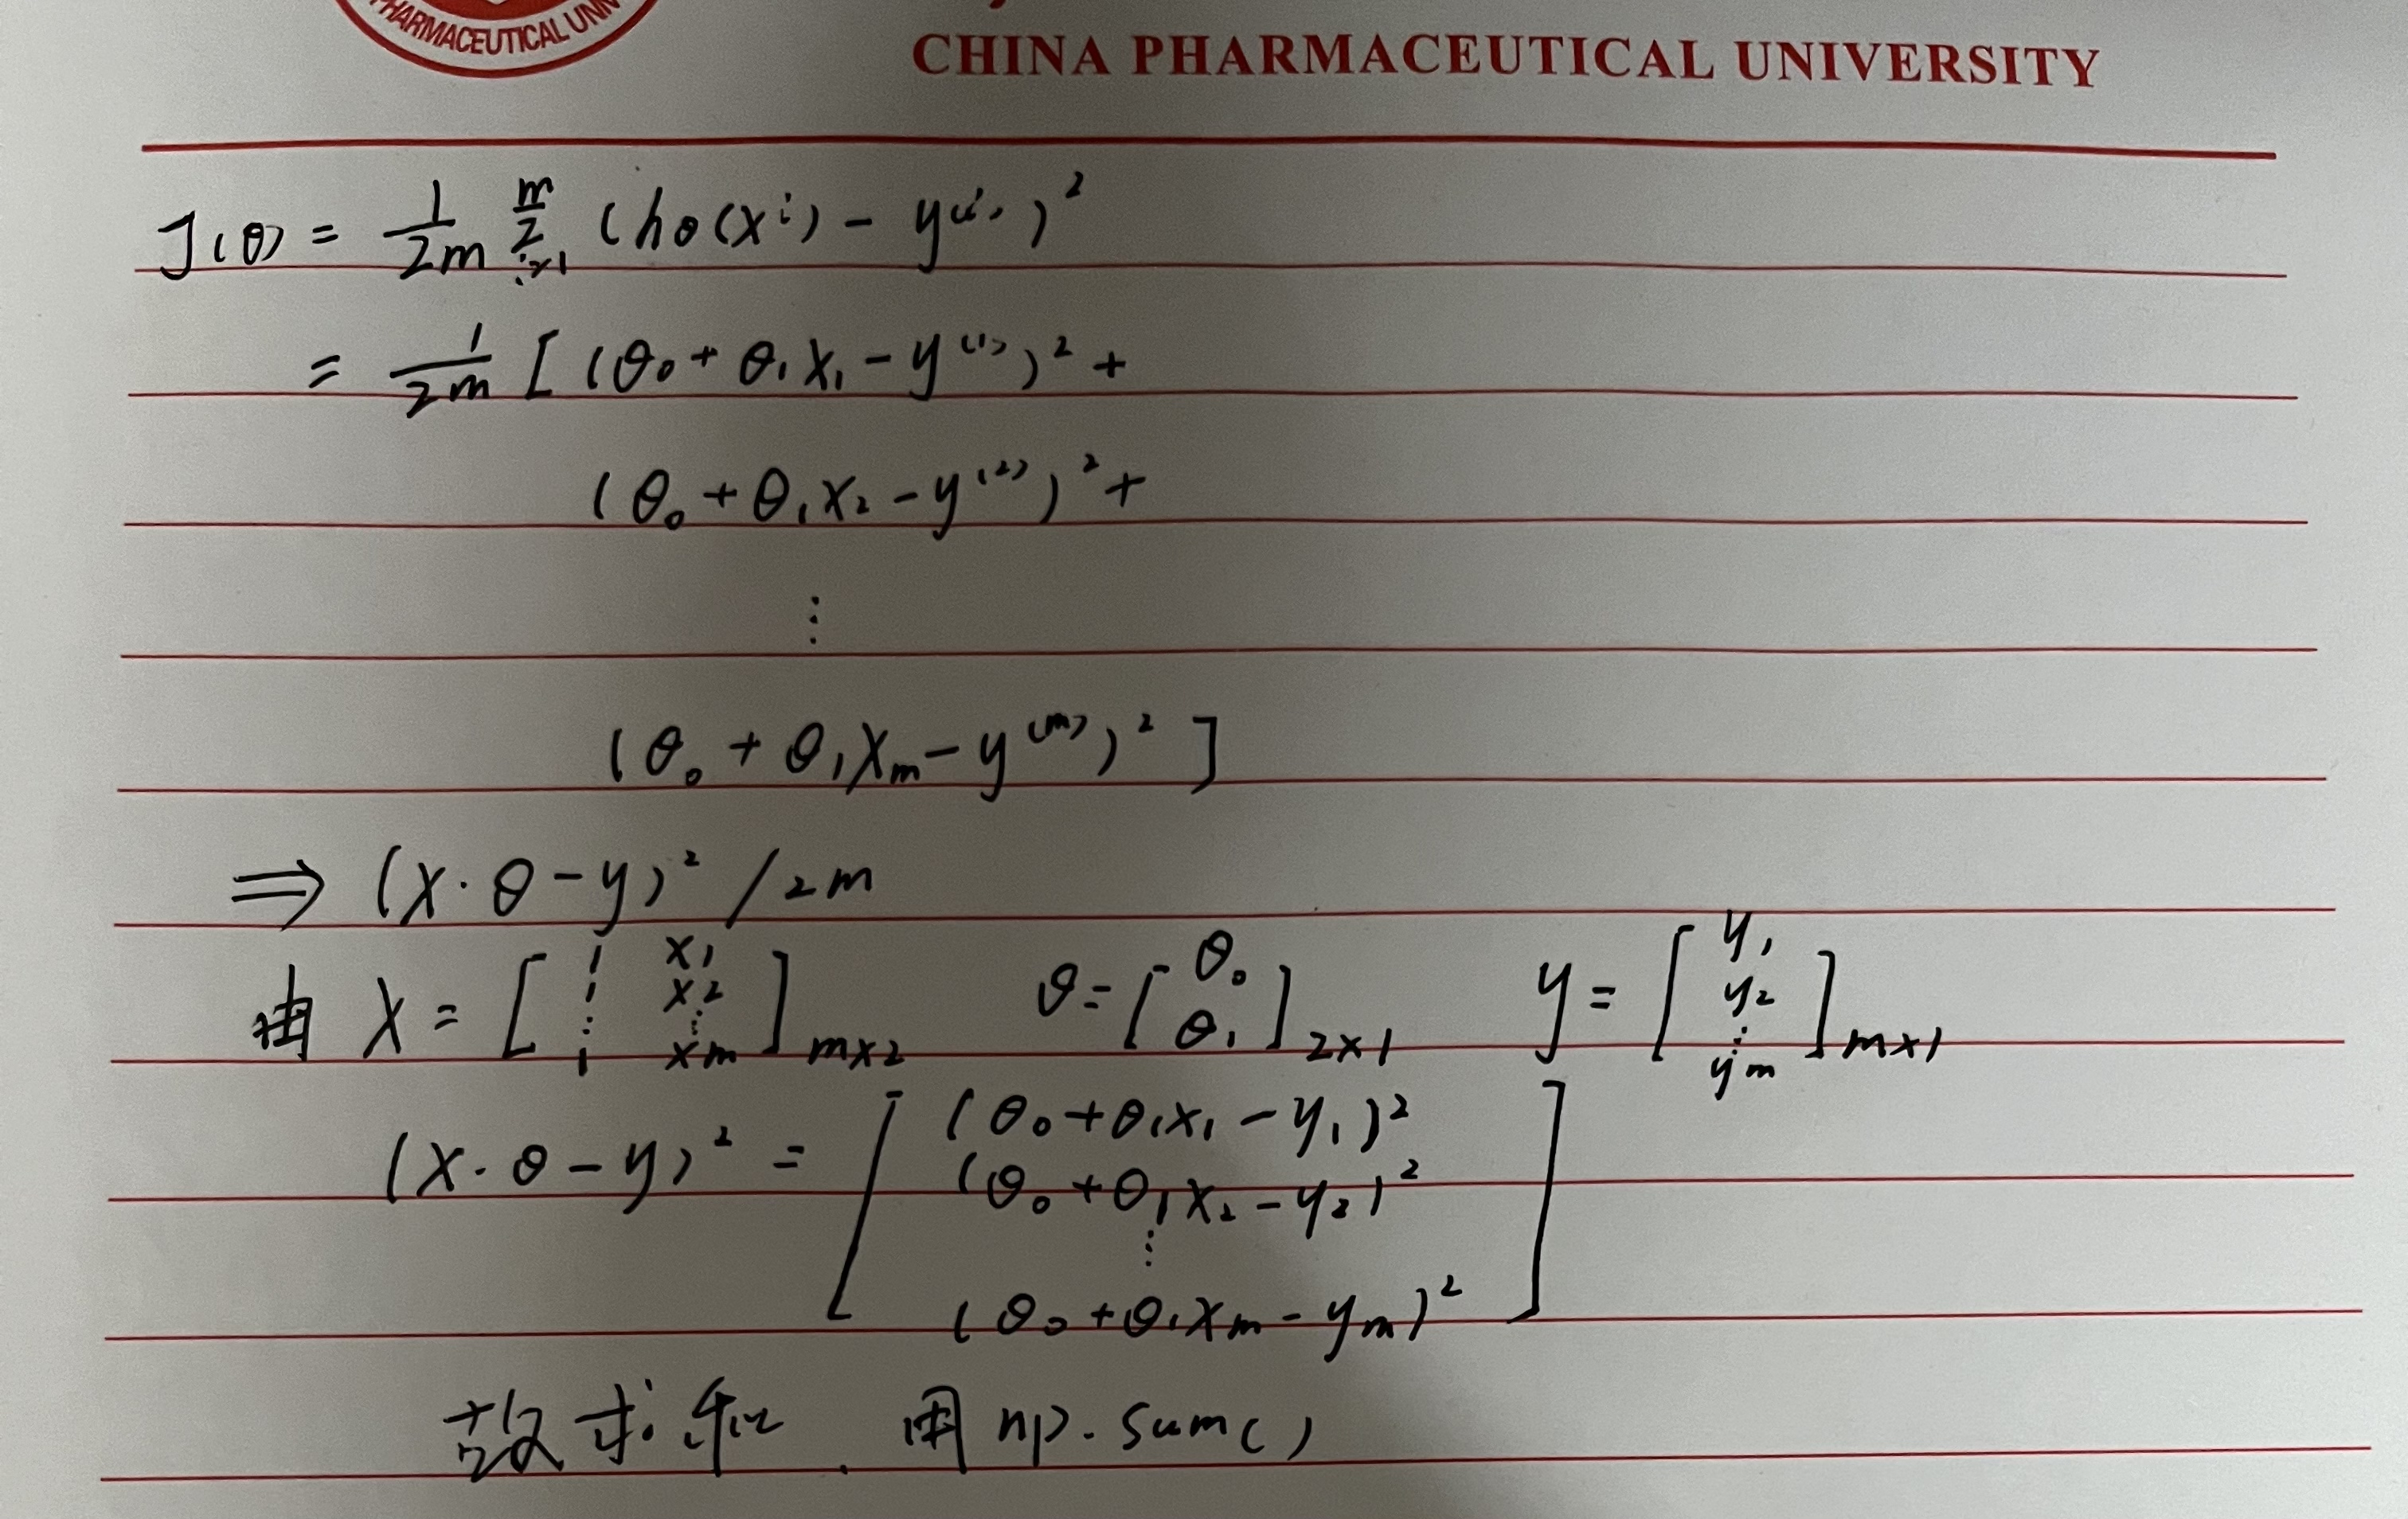 PHARMACEUTICAL UNIV
CHINA PHARMACEUTICAL UNIVERSITY
J(θ) = 1/2m ∑ᵢ₌₁ᵐ (hθ(xⁱ) - y⁽ⁱ⁾)²
= 1/2m [(θ₀ + θ₁x₁ - y⁽¹⁾)² +
(θ₀ + θ₁x₂ - y⁽²⁾)² +
⋮
(θ₀ + θ₁xₘ - y⁽ᵐ⁾)²]
⇒ (X·θ - y)² / 2m
由 X = [1 x₁; 1 x₂; ⋮ ⋮; 1 xₘ]ₘₓ₂ θ = [θ₀; θ₁]₂ₓ₁ y = [y₁; y₂; ⋮; yₘ]ₘₓ₁
(X·θ - y)² = [(θ₀ + θ₁x₁ - y₁)²
(θ₀ + θ₁x₂ - y₂)²
⋮
(θ₀ + θ₁xₘ - yₘ)²]
故求和. 用 np.sum()